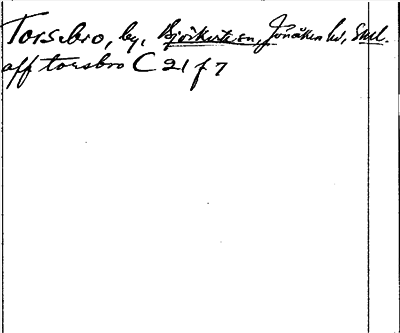 Torsebro, by, Björkvik sn, Jönåkers hd, Sml.
aff torsbro C 21 f 7